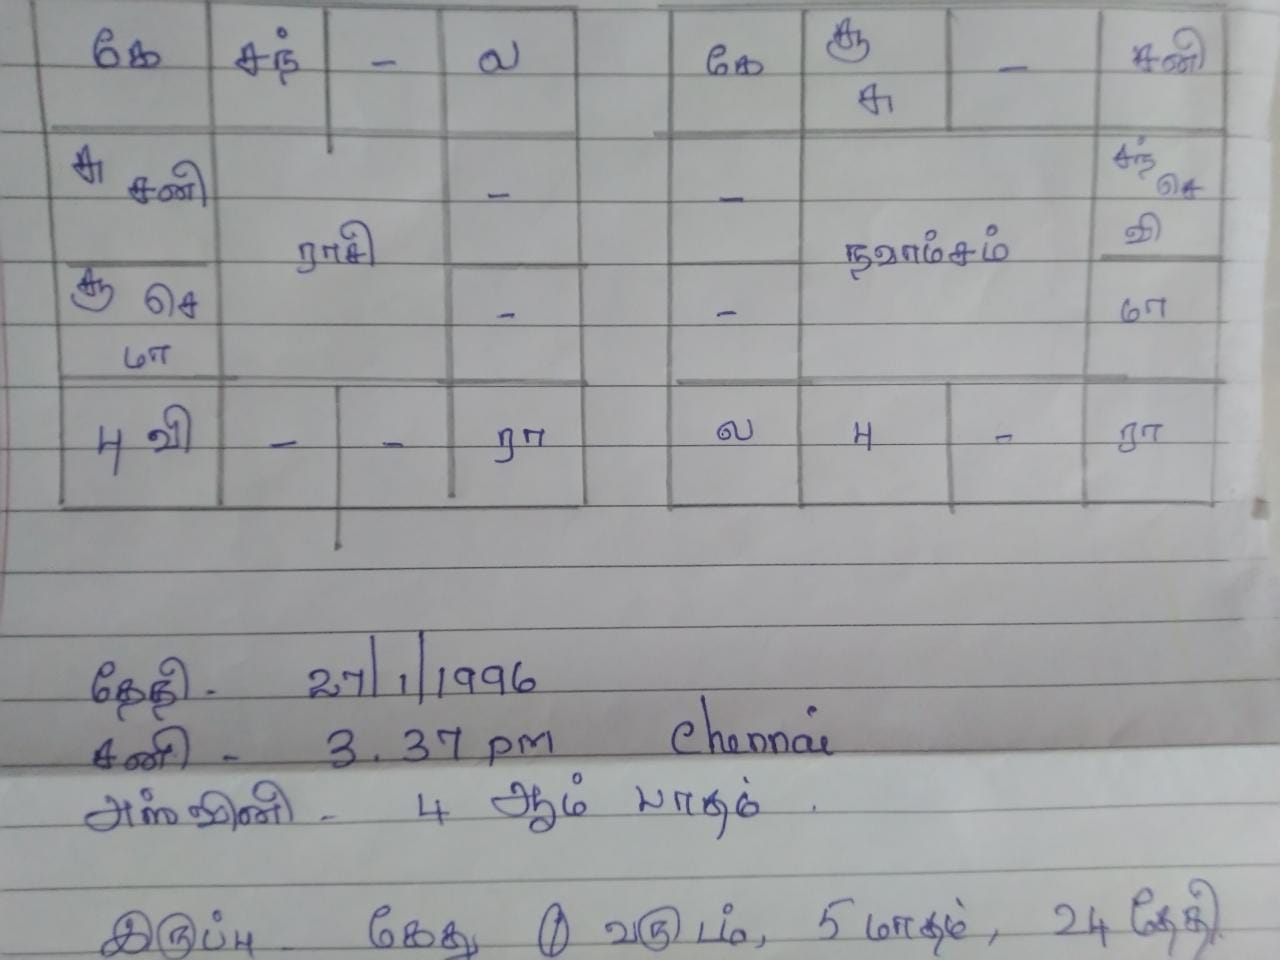 கே சந் - ல கே சூ சு - சனி
சு சனி - - சந் செ வி
ராசி நவாம்சம்
சூ செ மா - - மா
பு வி - - ரா ல பு - ரா
தேதி - 27/1/1996
சனி - 3.37 pm Chennai
அஸ்வினி - 4 ஆம் பாதம் .
இருப்பு - கேது 1 வருடம், 5 மாதம், 24 தேதி